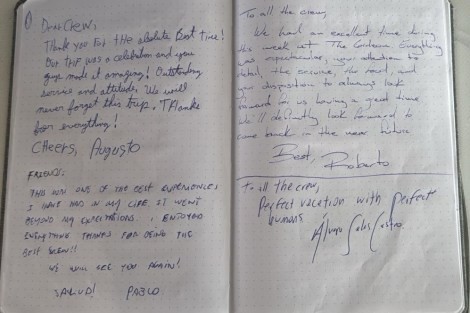 Dear Crew,
Thank you for the absolute Best time!
Our trip was a celebration and you
guys made it amazing! Outstanding
service and attitude. We will
never forget this trip. Thanks
for everything!
Cheers, Augusto
FRIENDS:
THIS WAS ONE OF THE BEST EXPERIENCES
I HAVE HAD IN MY LIFE. IT WENT
BEYOND MY EXPECTATIONS. I ENJOYED
EVERYTHING THANKS FOR BEING THE
BEST CREW!!
WE WILL SEE YOU AGAIN!
SALUD! PABLO
To all the crew,
We had an excellent time during
this week at The Everything
was espectacular, your attention to
detail, the service, the food, and
your disposition to always look
forward for us having a great time
We'll definitly look forward to
come back in the near future
Best, Roberto
To all the crew,
Perfect vacation with perfect
humans
Álvaro Castro